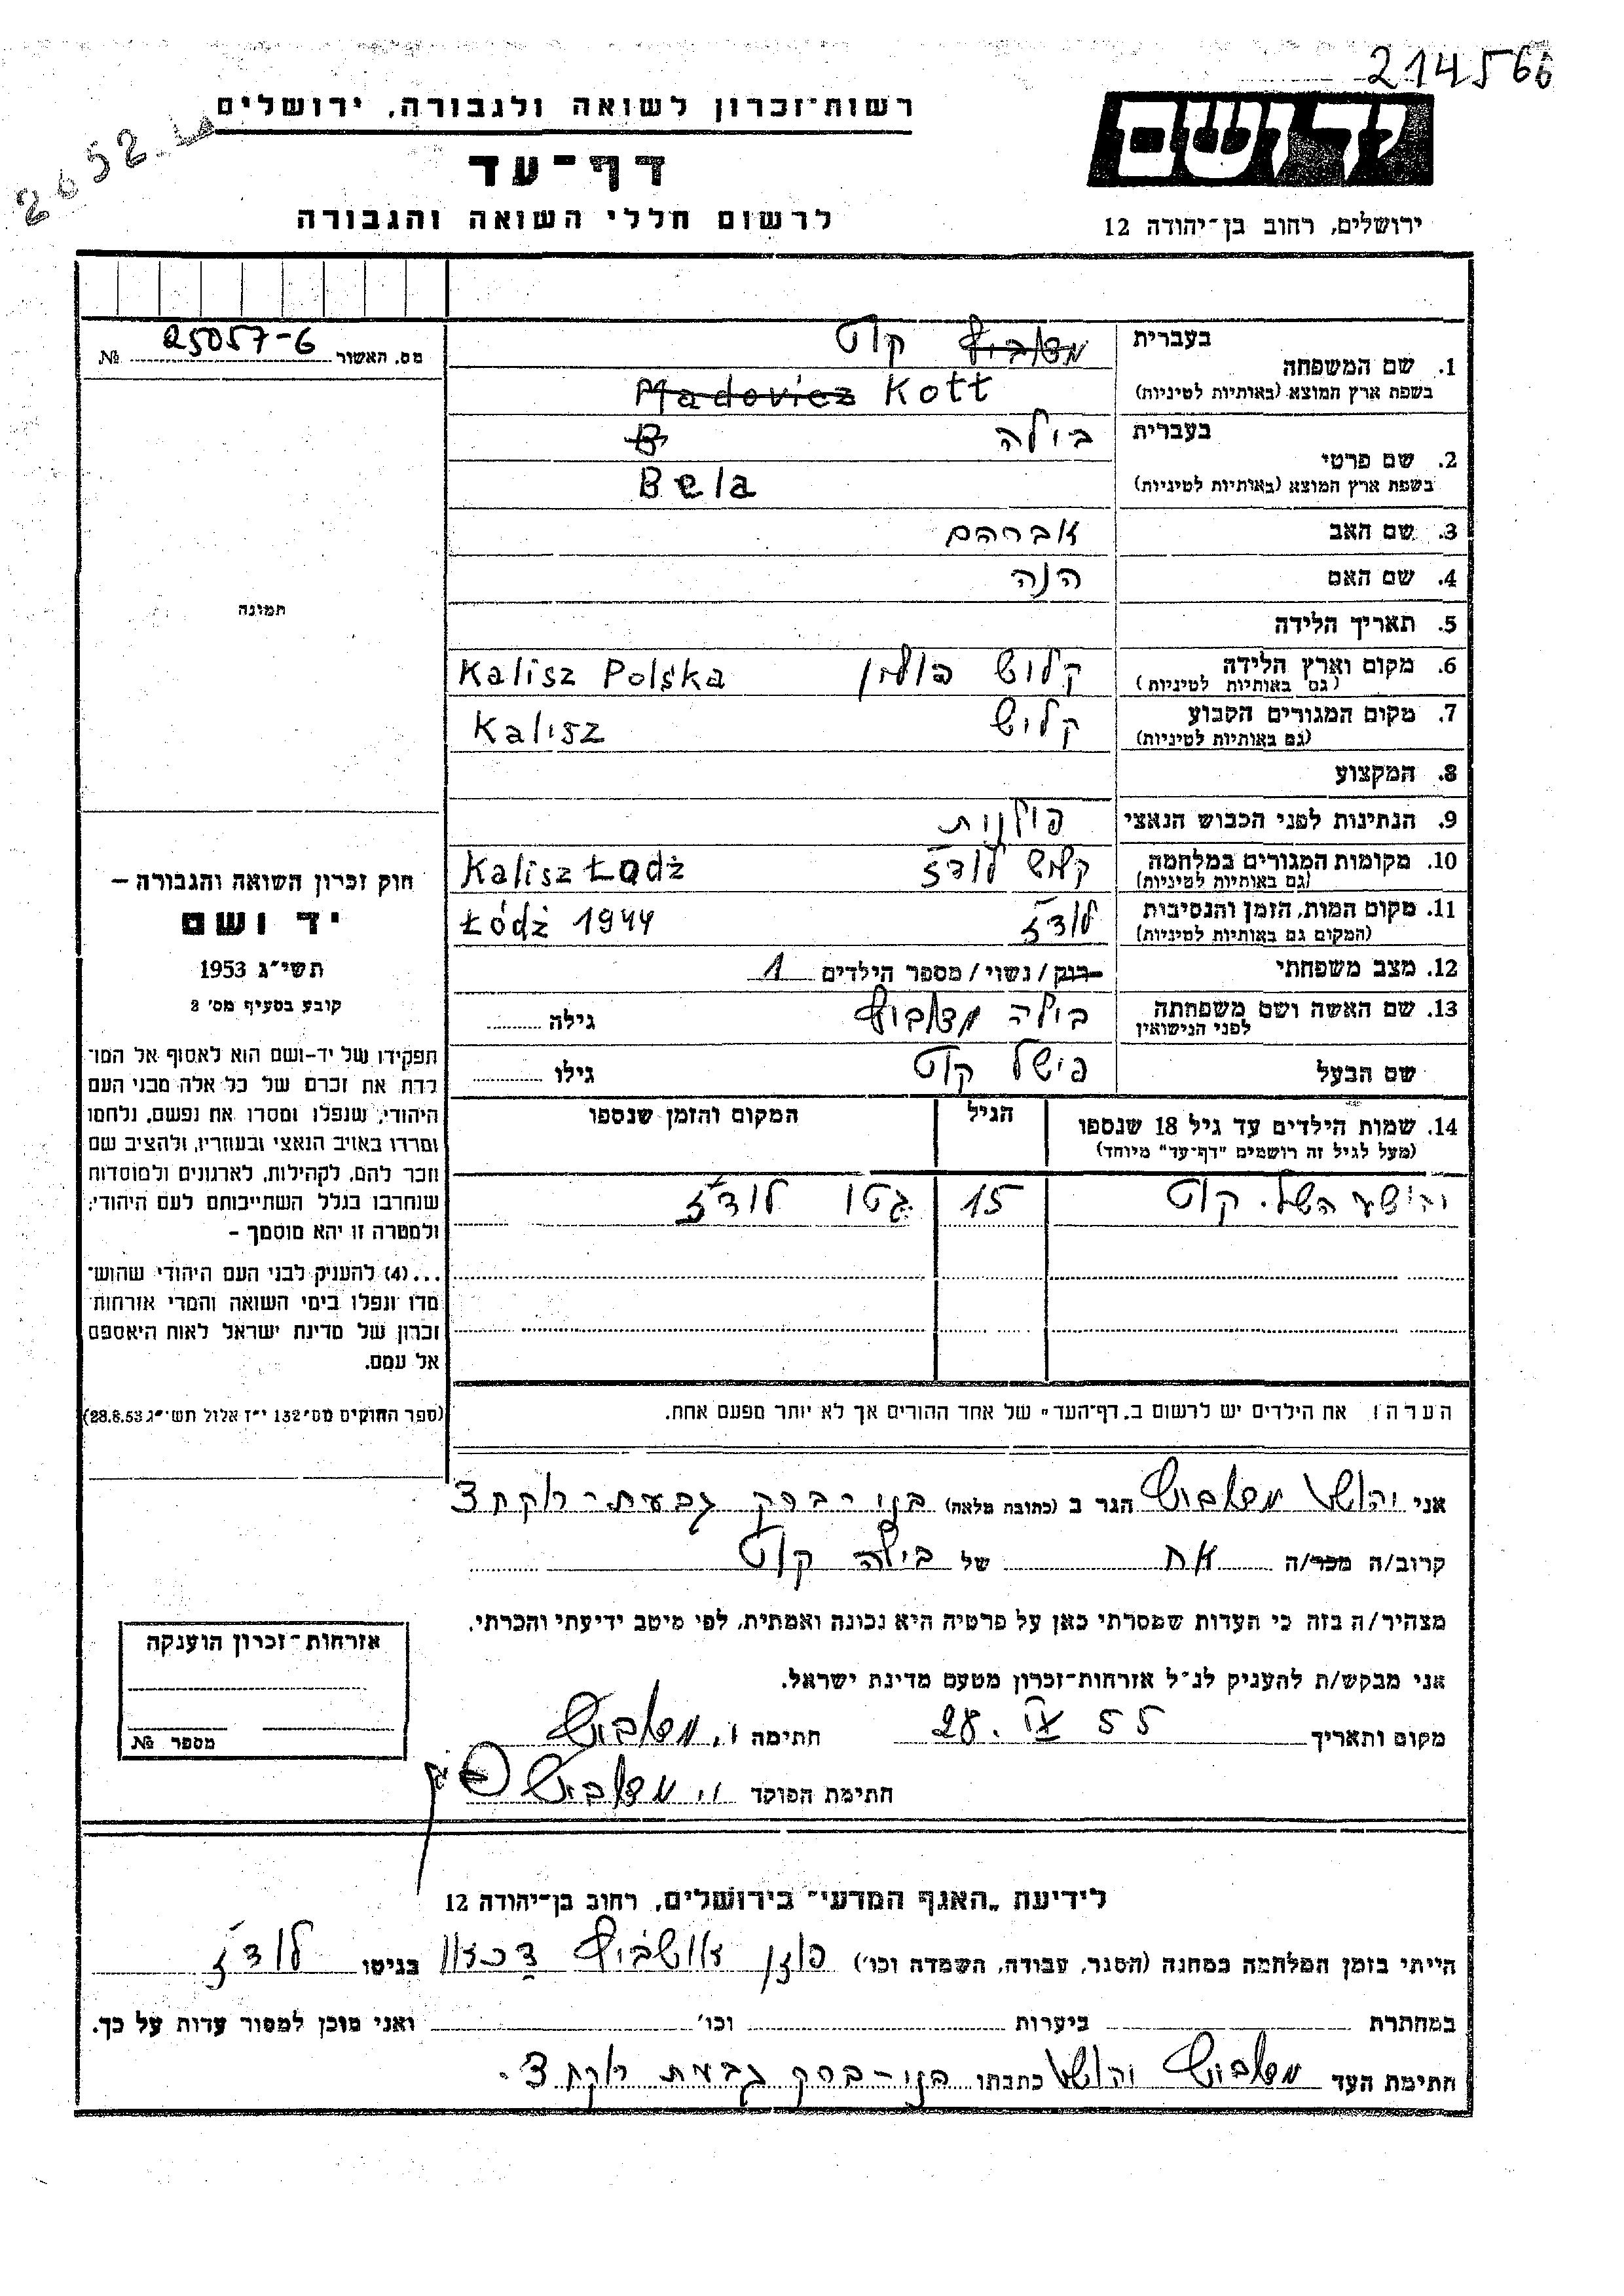 214566
2652
רשות־זכרון לשואה ולגבורה, ירושלים
יד ושם
דף־עד
לרשום חללי השואה והגבורה
ירושלים, רחוב בן־יהודה 12
מס. האשור 25057-6 №
1. שם המשפחה
בעברית קוט
בשפת ארץ המוצא (באותיות לטיניות) Madovicz Kott
2. שם פרטי
בעברית בילה B
בשפת ארץ המוצא (באותיות לטיניות) Bela
3. שם האב אברהם
4. שם האם הנה
תמונה
5. תאריך הלידה
6. מקום וארץ הלידה קליש פולין Kalisz Polska
(גם באותיות לטיניות)
7. מקום המגורים הקבוע קליש Kalisz
(גם באותיות לטיניות)
8. המקצוע
9. הנתינות לפני הכבוש הנאצי פולנית
10. מקומות המגורים במלחמה קליש לודז' Kalisz Łodż
(גם באותיות לטיניות)
11. מקום המות, הזמן והנסיבות לודז' Łódż 1944
(המקום גם באותיות לטיניות)
12. מצב משפחתי רוק / נשוי / מספר הילדים 1
13. שם האשה ושם משפחתה בילה גילה
לפני הנישואין
שם הבעל פישל קוט גילו
14. שמות הילדים עד גיל 18 שנספו הגיל המקום והזמן שנספו
(מעל לגיל זה רושמים "דף־עד" מיוחד)
יהושע השל קוט 15 גטו לודז'
הערה: את הילדים יש לרשום ב„דף־העד" של אחד ההורים אך לא יותר מפעם אחת.
חוק זכרון השואה והגבורה –
יד ושם
תשי״ג 1953
קובע בסעיף מס׳ 2
תפקידו של יד–ושם הוא לאסוף אל המו־
לדת את זכרם של כל אלה מבני העם
היהודי, שנפלו ומסרו את נפשם, נלחמו
ומרדו באויב הנאצי ובעוזריו, ולהציב שם
וזכר להם, לקהילות, לארגונים ולמוסדות
שנחרבו בגלל השתייכותם לעם היהודי;
ולמטרה זו יהא מוסמך –
...(4) להעניק לבני העם היהודי שהוש־
מדו ונפלו בימי השואה והמרי אזרחות
זכרון של מדינת ישראל לאות היאספם
אל עמם.
(ספר החוקים מס׳ 132 י״ז אלול תשי״ג 28.8.53)
אני יהושע הגר ב (כתובת מלאה) בני-ברק גבעת-רוקח 3
קרוב/ה מכר/ה אח של בילה קוט
מצהיר/ה בזה כי העדות שמסרתי כאן על פרטיה היא נכונה ואמתית, לפי מיטב ידיעתי והכרתי.
אני מבקש/ת להעניק לנ״ל אזרחות־זכרון מטעם מדינת ישראל.
מקום ותאריך 28. IV 55 חתימה
חתימת הפוקד
אזרחות־זכרון הוענקה
מספר №
לידיעת „האגף המדעי" בירושלים, רחוב בן־יהודה 12
הייתי בזמן המלחמה במחנה (הסגר, עבודה, השמדה וכו׳) פוזן אושביץ דכאו בגיטו לודז'
במחתרת ביערות וכו׳ ואני מוכן למסור עדות על כך.
חתימת העד יהושע כתבתו בני-ברק גבעת רוקח 3.